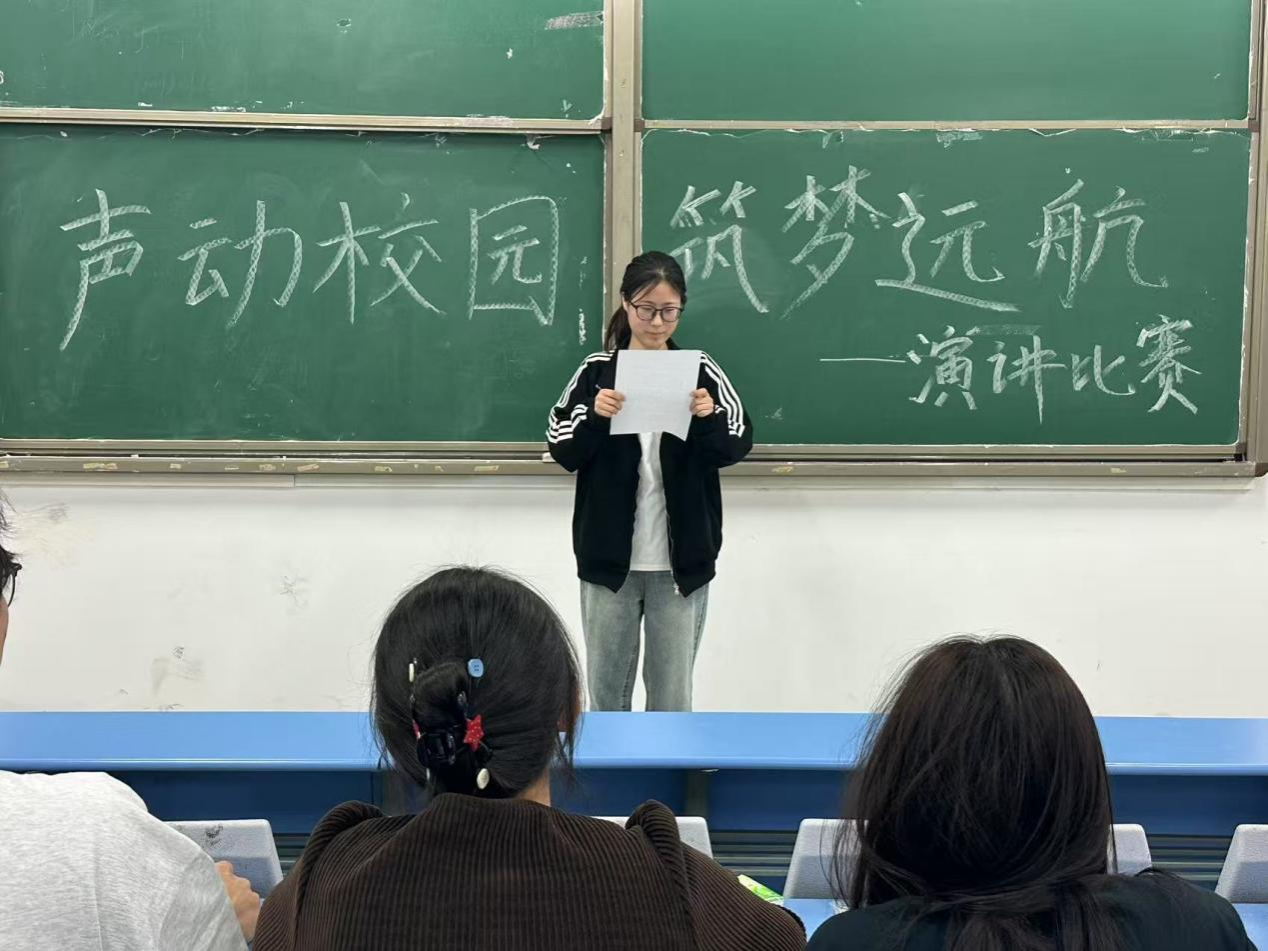 声动校园 筑梦远航
——演讲比赛